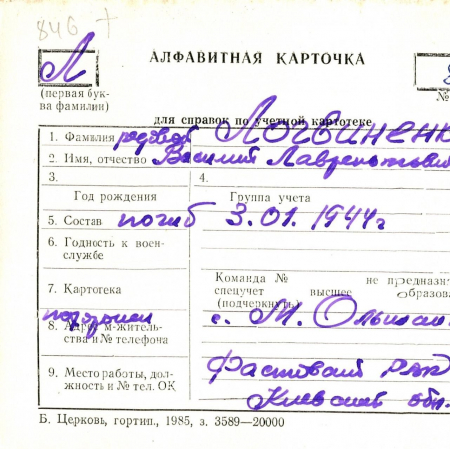 846 +
АЛФАВИТНАЯ КАРТОЧКА
Л
(первая бук-
ва фамилии)
№
для справок по учетной картотеке
1. Фамилия рядовой Логвиненко
2. Имя, отчество Василий Лаврентьевич
3.
4.
Год рождения
Группа учета
5. Состав погиб 3.01.1944 г
6. Годность к воен-
службе
Команда № не предназн
7. Картотека
спецучет высшее образова
(подчеркнуть)
похоронен с. М. Ольшан
8. Адрес м-житель-
ства и № телефона
9. Место работы, дол-
жность и № тел. ОК
Фастовский р-н
Киевской обл.
Б. Церковь, гортип., 1985, з. 3589—20000